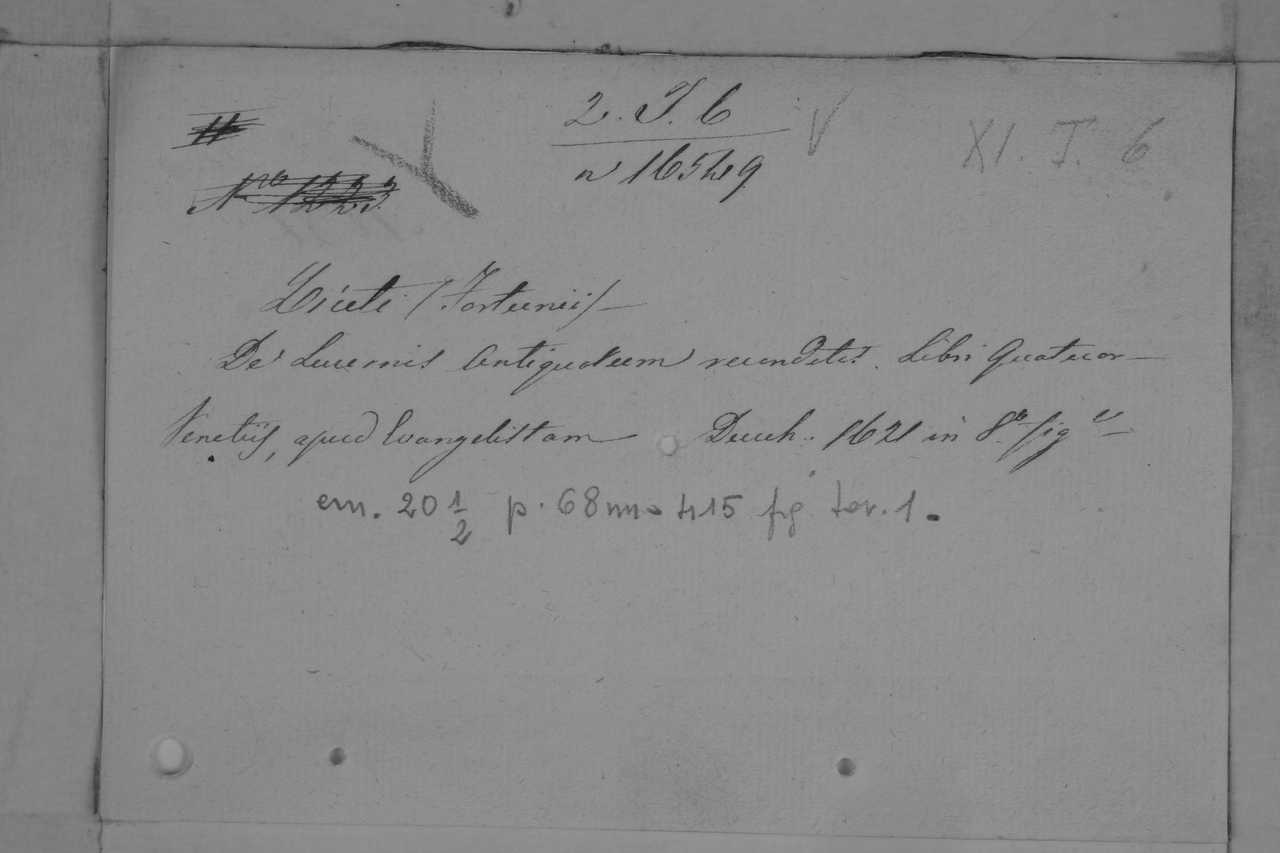 2. J. 6
n 16549
XI. J. 6
Nro 1223
Liceti (Fortunii)
De Lucernis Antiquorum reconditis. Libri Quatuor
Venetiis, apud Evangelistam Deuch. 1621 in 8º fig
cm. 20 1/2 p. 68nn 415 fig tav. 1.